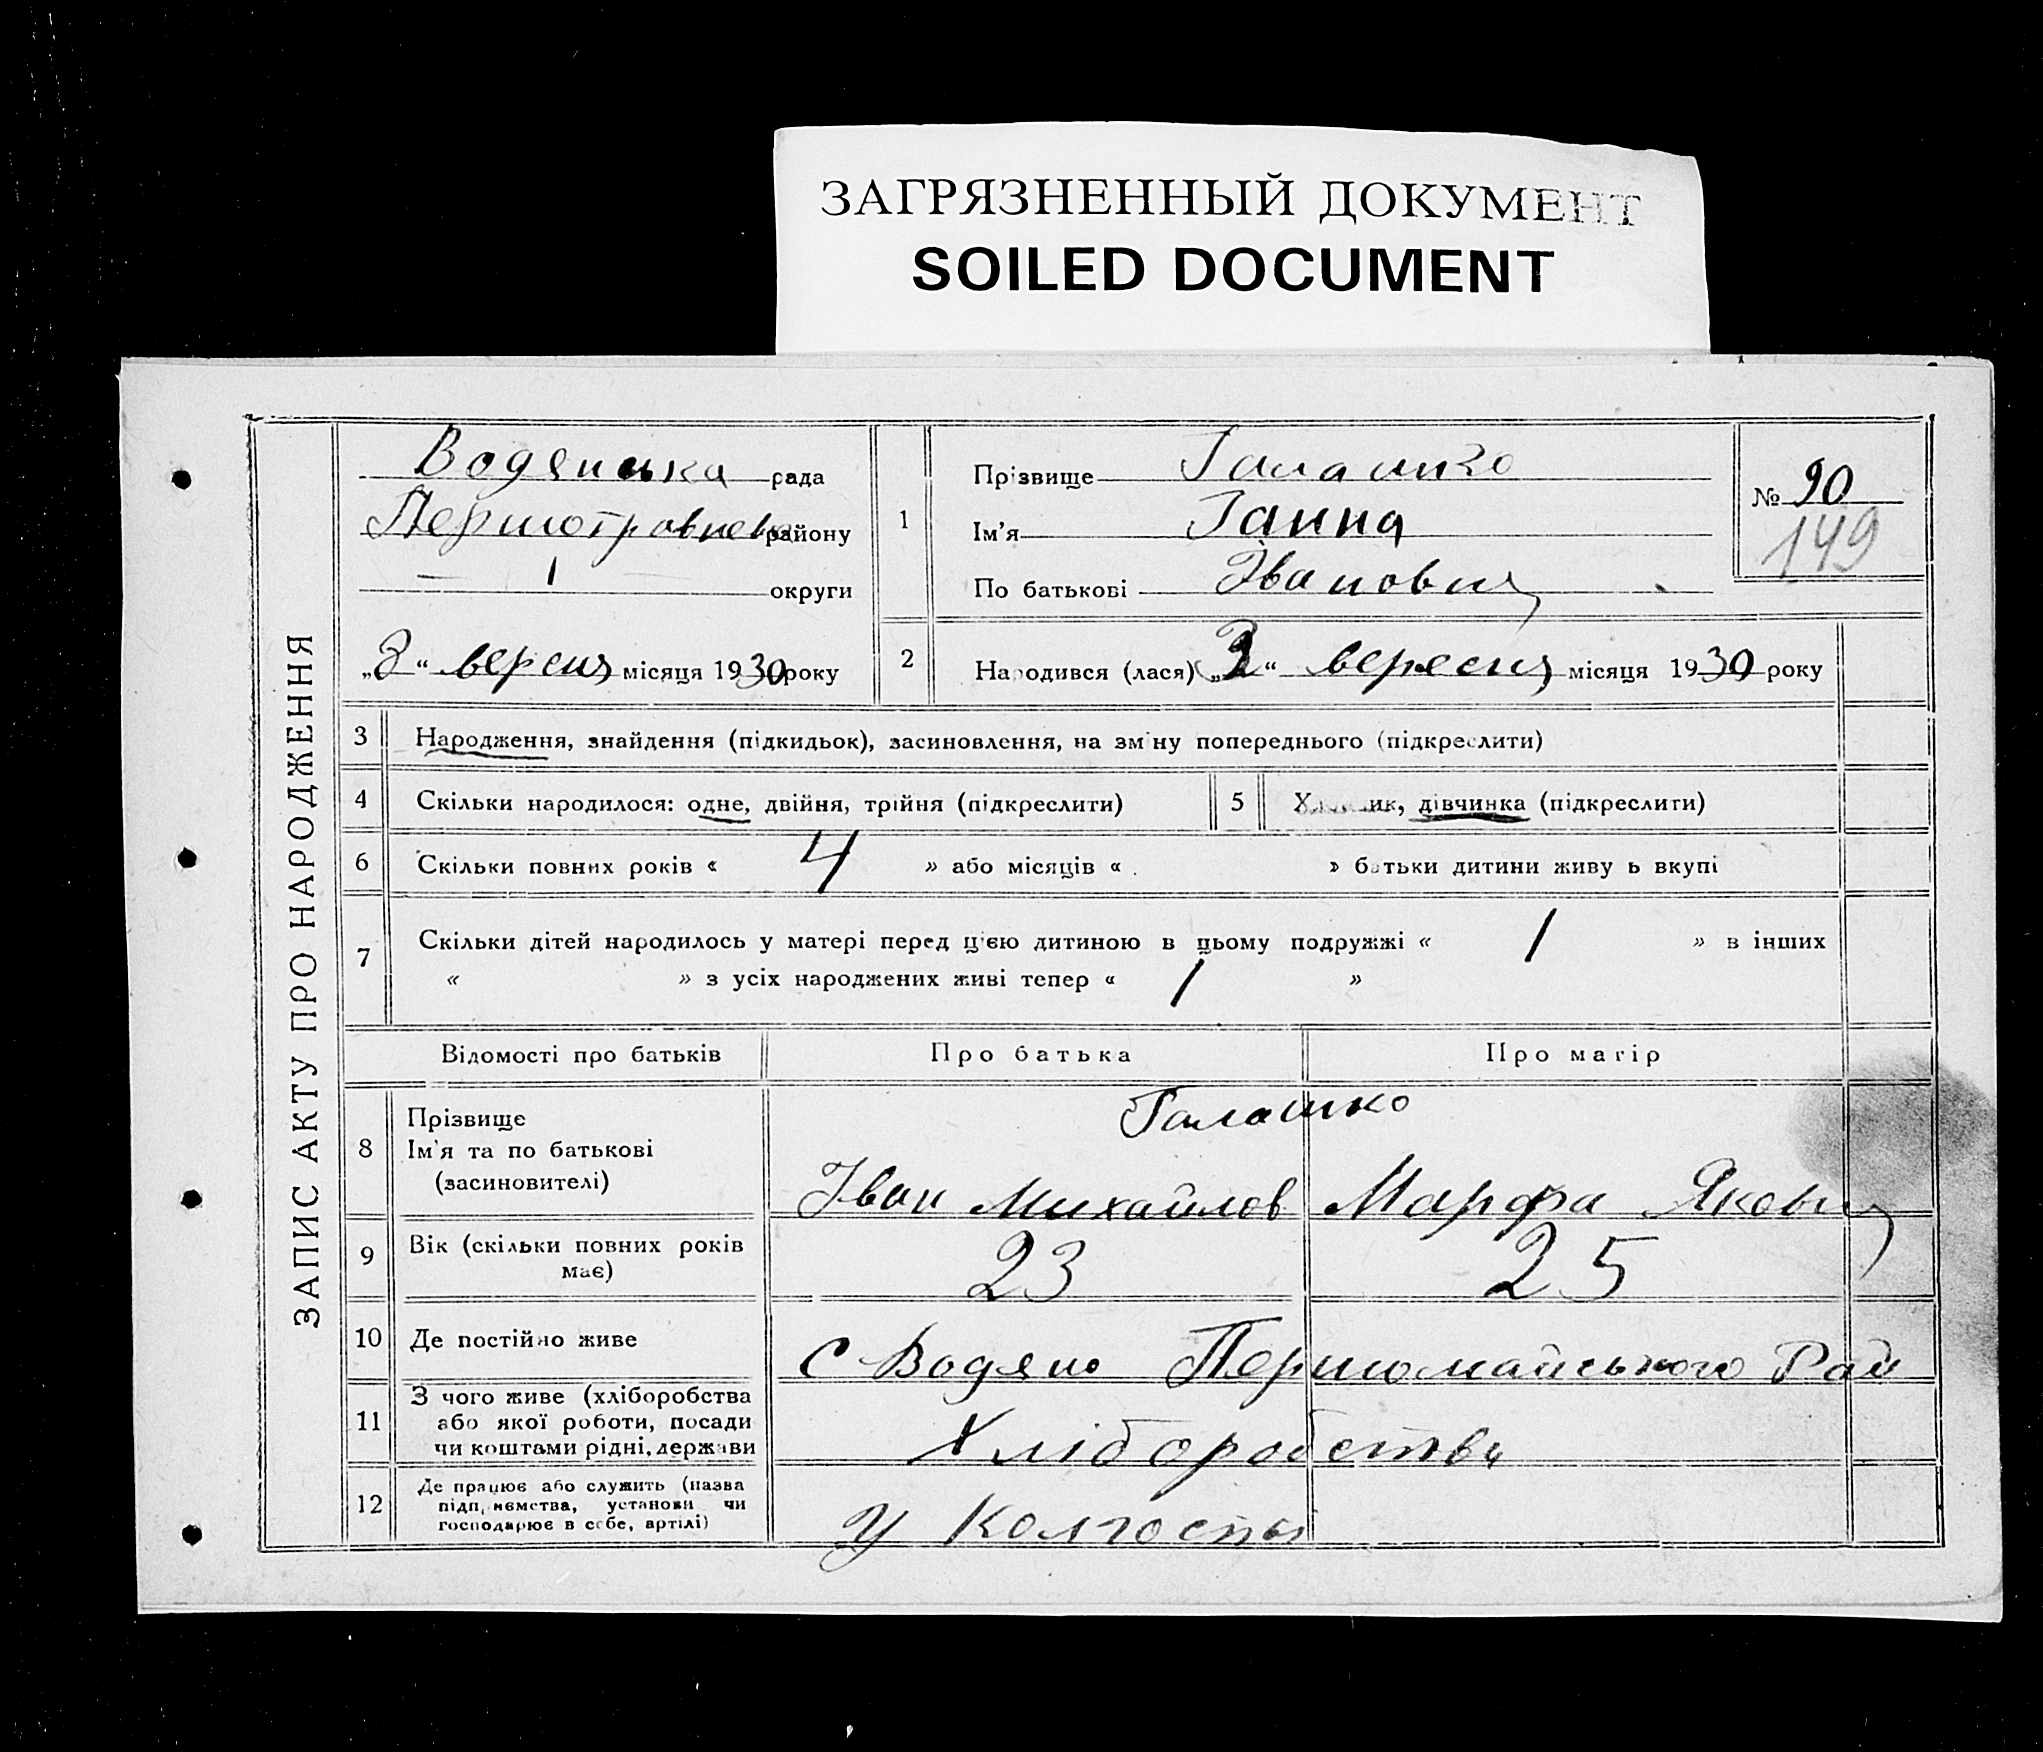 ЗАГРЯЗНЕННЫЙ ДОКУМЕНТ
SOILED DOCUMENT
ЗАПИС АКТУ ПРО НАРОДЖЕННЯ
Водянська рада
району
округи
1
Прізвище Галашко
Ім'я Ганна
По батькові Івановна
№ 90
149
„3“ вересня місяця 1930 року
2 Народився (лася) „“ вересня місяця 1930 року
3 Народження, знайдення (підкидьок), засиновлення, на зміну попереднього (підкреслити)
4 Скільки народилося: одне, двійня, трійня (підкреслити)
5 Хлопчик, дівчинка (підкреслити)
6 Скільки повних років « 4 » або місяців « » батьки дитини живуть вкупі
7 Скільки дітей народилось у матері перед цією дитиною в цьому подружжі « 1 » в інших
« » з усіх народжених живі тепер « 1 »
Відомості про батьків Про батька Про матір
8 Прізвище
Ім'я та по батькові
(засиновителі)
Галашко
Іван Михайлов Марфа Яковн
9 Вік (скільки повних років
має)
23 25
10 Де постійно живе с Водяно Першомайського Рай
11 З чого живе (хліборобства
або якої роботи, посади
чи коштами рідні, держави
Хліборобства
12 Де працює або служить (назва
підприємства, установи чи
господарює в себе, артілі)
у Колгоспі